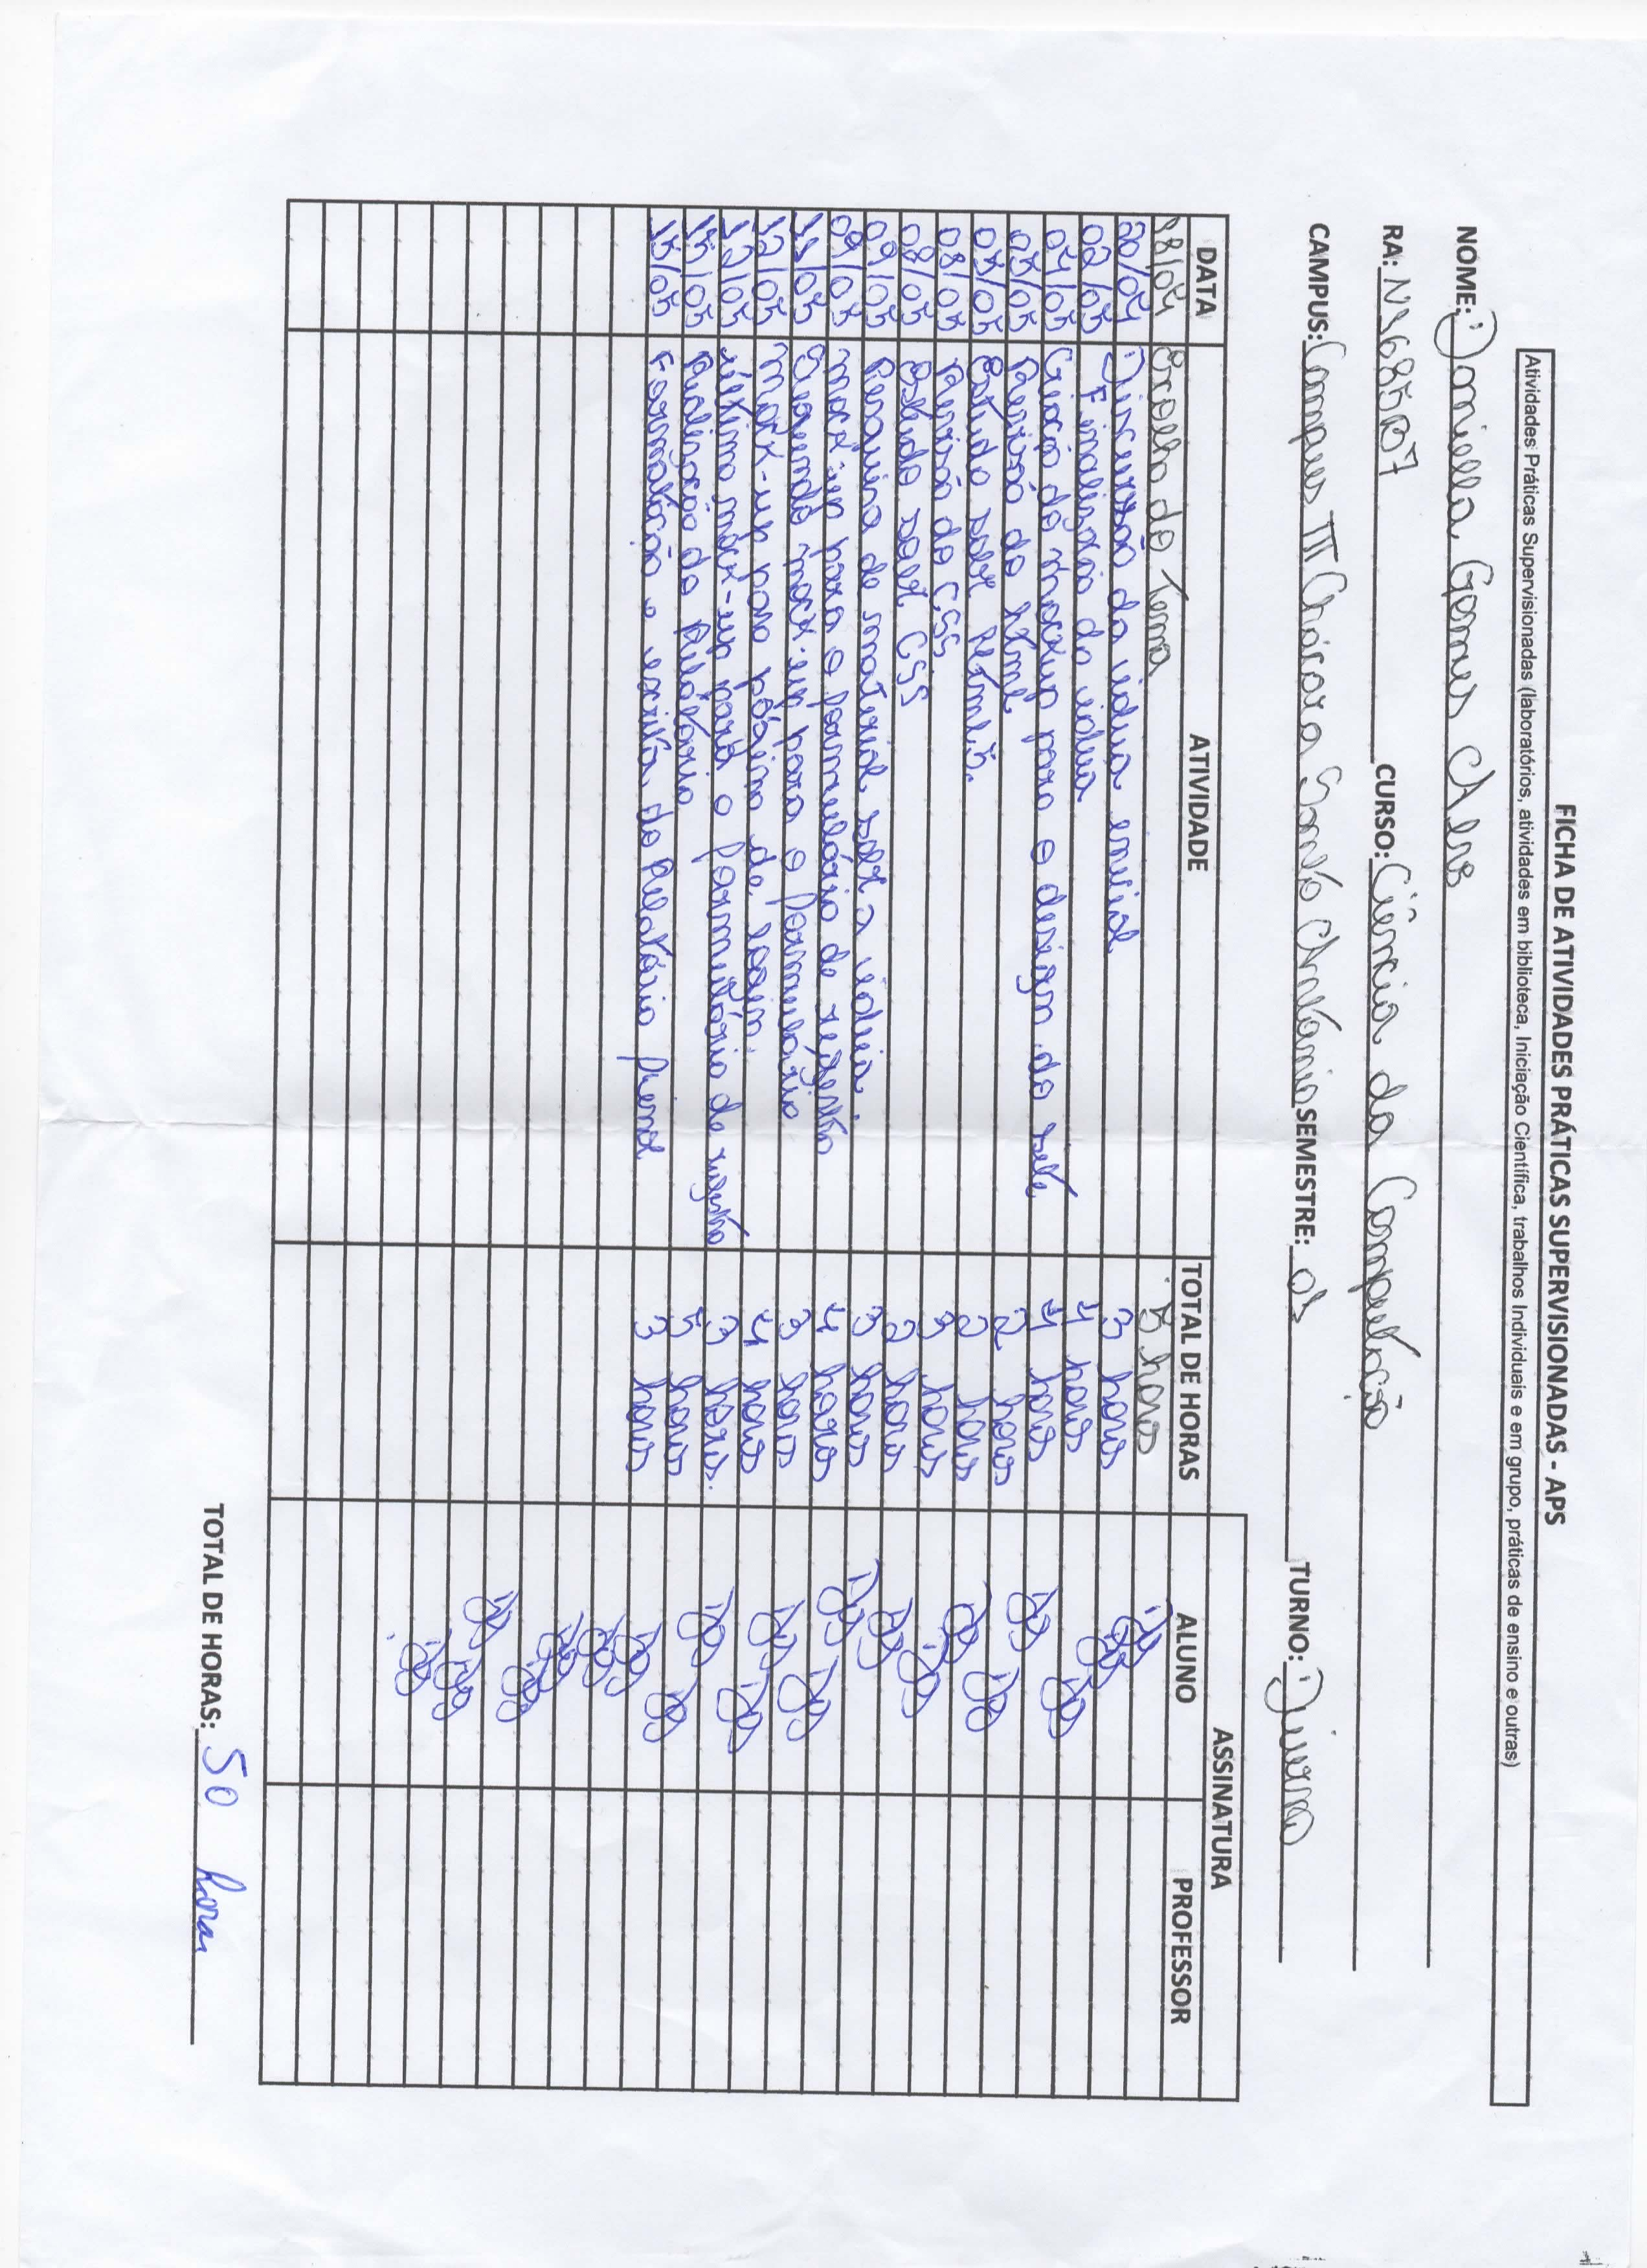 FICHA DE ATIVIDADES PRÁTICAS SUPERVISIONADAS - APS
Atividades Práticas Supervisionadas (laboratórios, atividades em biblioteca, Iniciação Científica, trabalhos Individuais e em grupo, práticas de ensino e outras)
NOME: Daniella Gomes Alves
RA: N3685D7 CURSO: Ciência da Computação
CAMPUS: Campus III Chácara Santo Antônio SEMESTRE: 03 TURNO: Diurno
ASSINATURA
DATA ATIVIDADE TOTAL DE HORAS ALUNO PROFESSOR
18/04 Escolha do Tema 5 horas
20/04 Discussão da ideia inicial 3 horas
02/05 Finalização da ideia 4 horas
04/05 Criação do mockup para o design do site 4 horas
05/05 Revisão do html 2 horas
05/05 Estudo sobre html5. 2 horas
08/05 Revisão do CSS 3 horas
08/05 Estudo sobre CSS 2 horas
09/05 Pesquisa de material sobre a ideia. 3 horas
09/05 mock-up para o formulário de registro 4 horas
11/05 Segundo mock-up para o formulário 3 horas
12/05 Mock-up para página de login. 4 horas
12/05 último mock-up para o formulário de registro 3 horas.
15/05 Realização do Relatório 5 horas
15/05 Formatação e escrita do Relatório Final 3 horas
TOTAL DE HORAS: 50 horas